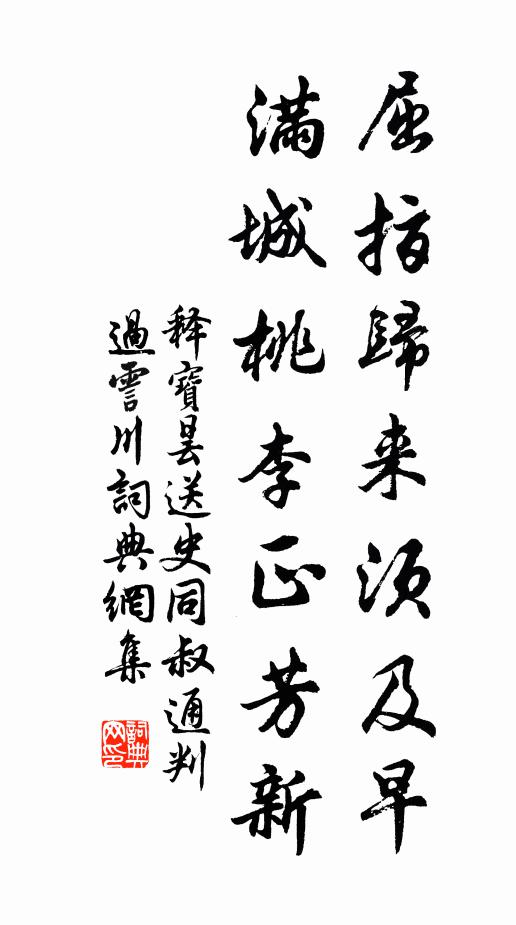 屈指歸来須及早
滿城桃李正芳新
释寶曇送史同叔通判
過霅川詞典網集
詞典
网印